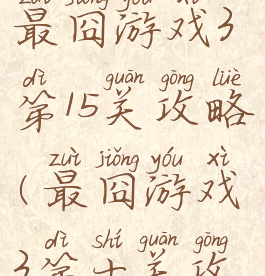 zuì jiǒng yóu xì
最囧游戏3
dì guān gōng lüè
第15关攻略
zuì jiǒng yóu xì
(最囧游戏
dì shí guān gōng
3第十关攻